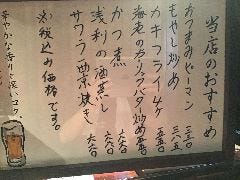 当店のおすすめ
おつまみピーマン 三一五
もやし炒め 三一五
カキフライ4ケ 五五〇
海老のガーリックバタ炒め 五八〇
かつ煮 六八〇
浅利の酒蒸し 六八〇
サフラン粟焼き 六六〇
※税込み価格です。
華やかな香りと深いコク。